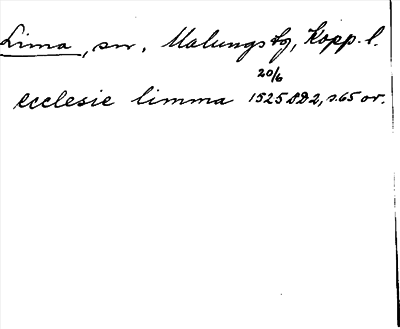 Lima, sn, Malungs tg, Kopp. l.
20/6
ecclesie limma 1525 DD2, s.65 or.